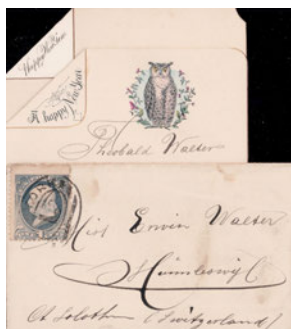 Happy New Year
A happy New Year
Theobald Walter
Erwin Walter
Ct Solothurn (Switzerland)